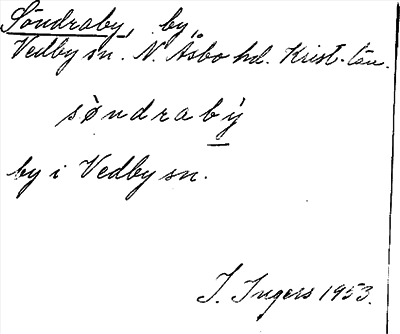 Söndraby, by,
Vedby sn. N. Åsbo hd. Krist. län.
sǿndrabỳ
by i Vedby sn.
I. Ingers 1953.